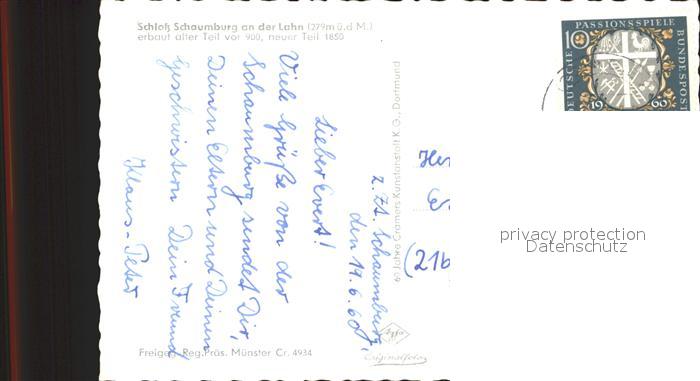 Schloß Schaumburg an der Lahn (279m ü.d M.)
erbaut alter Teil vor 900, neuer Teil 1850
z. Zt. Schaumburg,
den 19.6.60
Lieber Evert!
Viele Grüße von der
Schaumburg sendet Dir,
Deinen Eltern und Deinen
Geschwistern Dein Freund
Klaus-Peter
60 Jahre Cramers Kunstanstalt K.G., Dortmund
Her
(21b
DEUTSCHE BUNDESPOST
PASSIONSSPIELE
10
1960
privacy protection
Datenschutz
Freigeg. Reg.Präs. Münster Cr. 4934
Agfa
Originalfoto